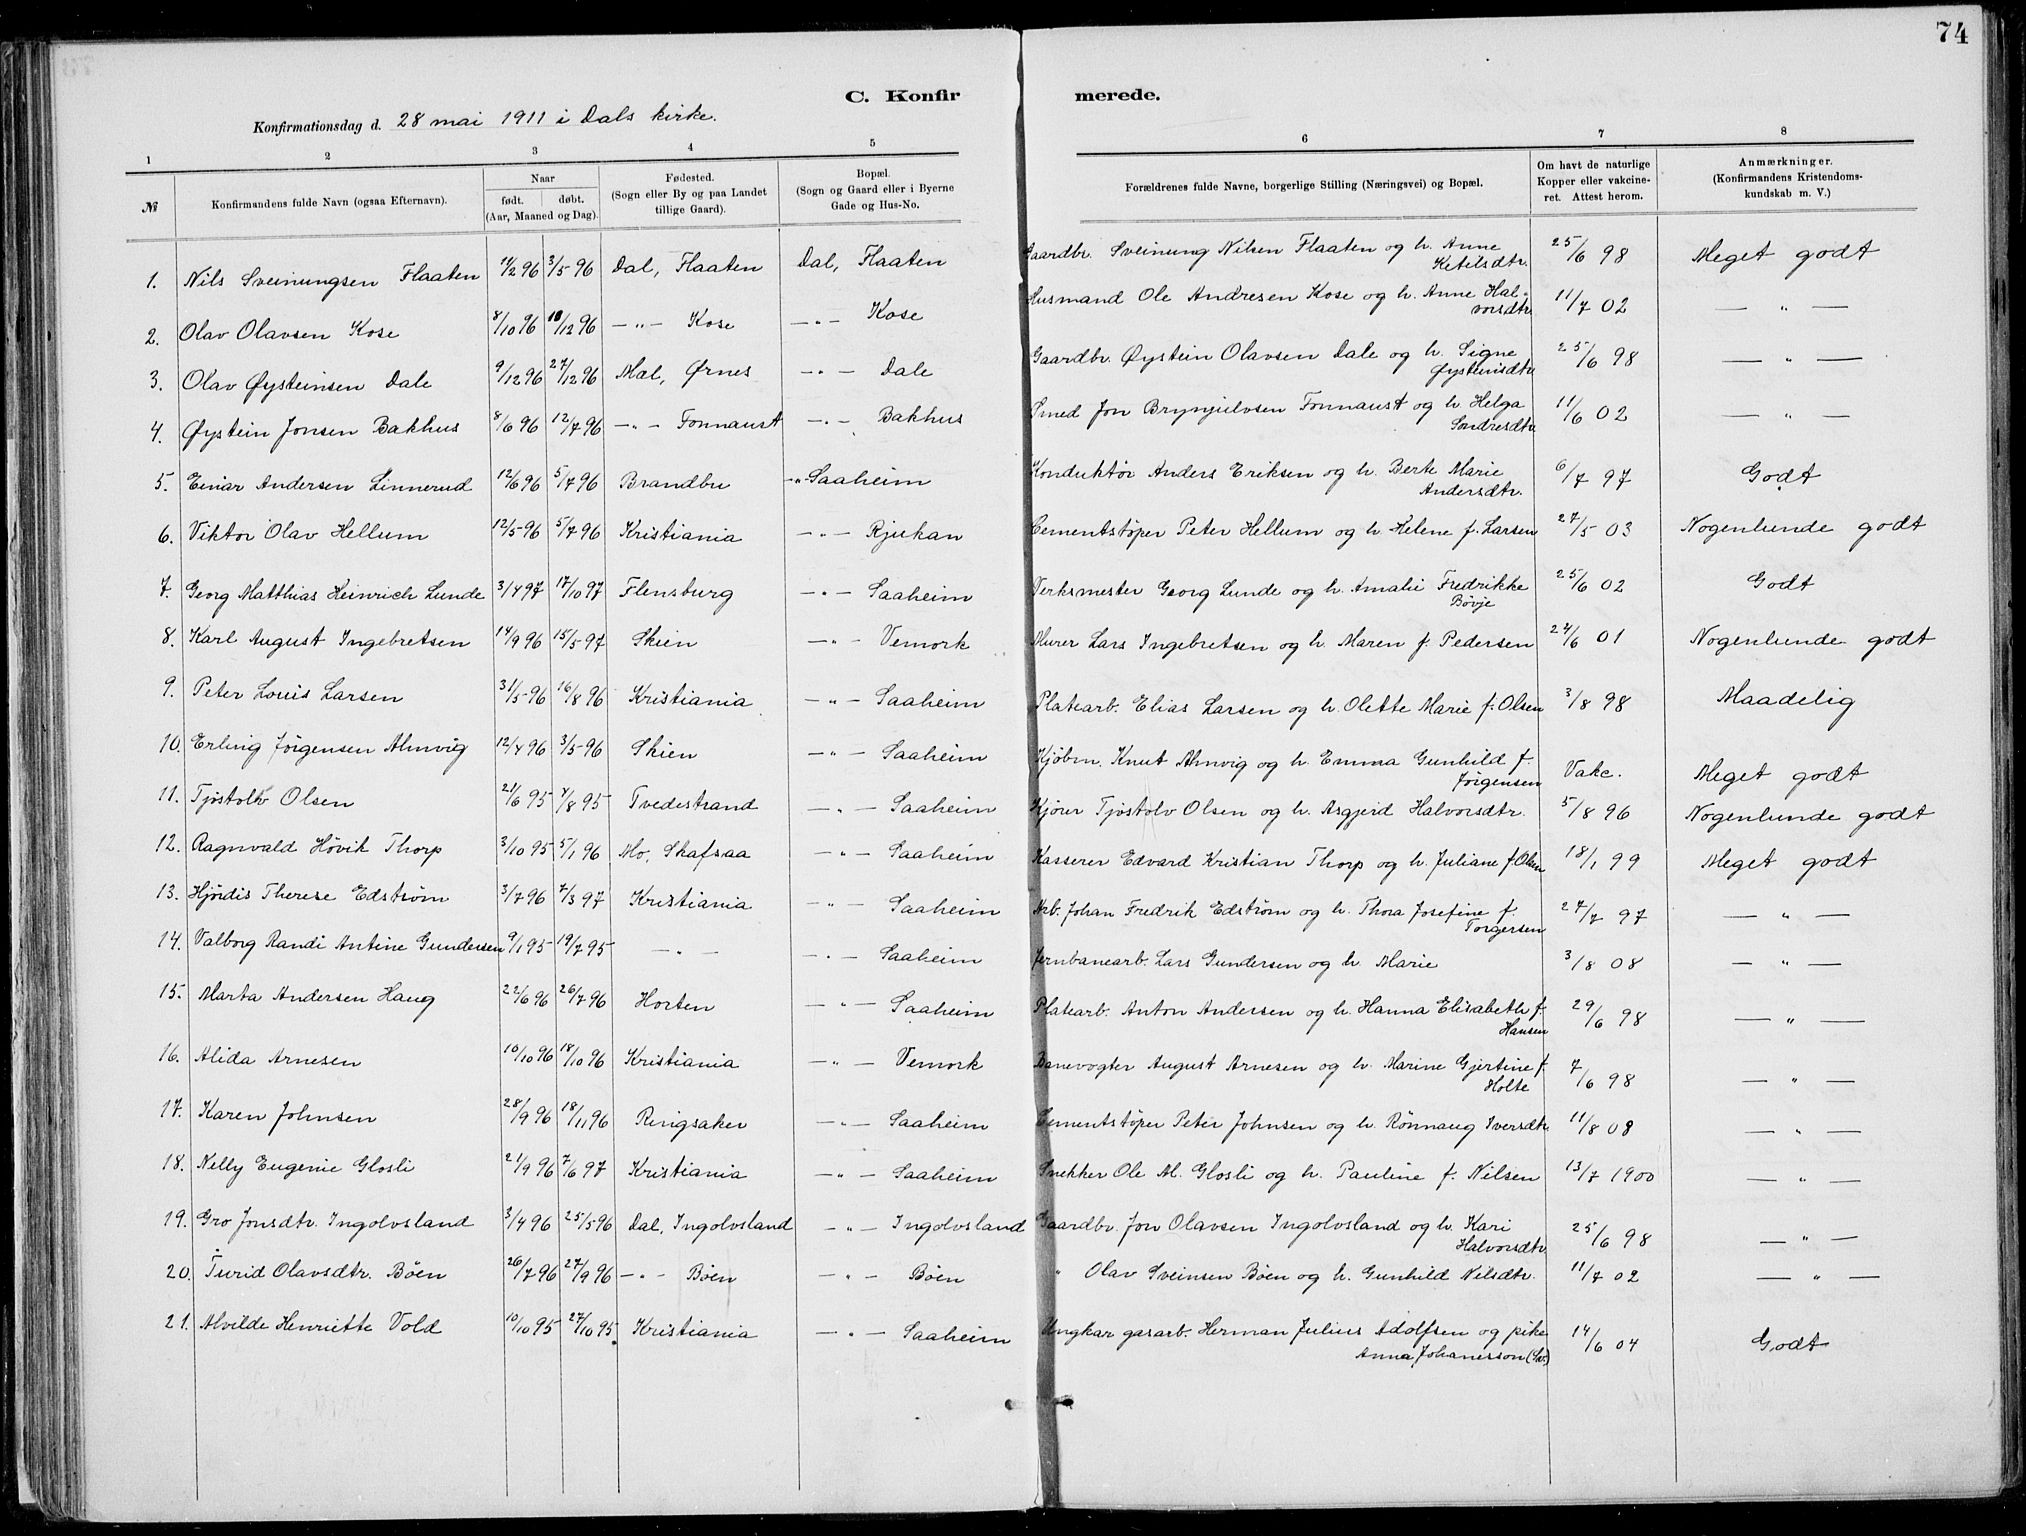 74
C. Konfirmerede.
Konfirmationsdag d. 28 mai 1911 i Dals kirke.
1 2 3 4 5 6 7 8
№ Konfirmandens fulde Navn (ogsaa Efternavn). Naar født. døbt. (Aar, Maaned og Dag). Fødested. (Sogn eller By og paa Landet tillige Gaard). Bopæl. (Sogn og Gaard eller i Byerne Gade og Hus-No. Forældrenes fulde Navne, borgerlige Stilling (Næringsvei) og Bopæl. Om havt de naturlige Kopper eller vakcineret. Attest herom. Anmærkninger. (Konfirmandens Kristendomskundskab m. V.)
1. Nils Sveinungsen Flaaten 11/2 96 3/5 96 Dal, Flaaten Dal, Flaaten Gaardbr. Sveinung Nilsen Flaaten og h. Anne Ketilsdtr. 25/6 98 Meget godt
2. Olav Olavsen Kose 8/10 96 18/12 96 — " — Kose — " — Kose Husmand Ole Andresen Kose og h. Anne Halvorsdtr. 11/7 02 — " —
3. Olav Øysteinsen Dale 9/12 96 27/12 96 Mæl, Ørnes — " — Dale Gaardbr. Øystein Olavsen Dale og h. Signe Øysteinsdtr. 25/6 98 — " —
4. Øystein Jonsen Bakhus 8/6 96 12/7 96 — " — Fonnaust — " — Bakhus Smed Jon Brynjulvsen Fonnaust og h. Helga Sondresdtr. 11/6 02 — " —
5. Einar Andersen Linnerud 12/6 96 5/7 96 Brandbu — " Saaheim Konduktør Anders Eriksen og h. Berte Marie Andersdtr. 6/7 97 Godt
6. Viktor Olav Hellum 12/5 96 5/7 96 Kristiania — " — Rjukan Cementstøper Peter Hellum og h. Helene f. Larsen 27/5 03 Nogenlunde godt
7. Georg Matthias Heinrich Lunde 3/4 97 17/10 97 Flensburg — " — Saaheim Verksmester Georg Lunde og h. Amalie Fredrikke Bøvje 25/6 02 Godt
8. Karl August Ingebretsen 14/9 96 15/5 97 Skien — " — Vemork Murer Lars Ingebretsen og h. Maren f. Pedersen 24/6 01 Nogenlunde godt
9. Peter Louis Larsen 31/5 96 16/8 96 Kristiania — " — Saaheim Platearb. Elias Larsen og h. Olette Marie f. Olsen 3/8 98 Maadelig
10. Erling Jørgensen Almvig 12/4 96 3/5 96 Skien — " — Saaheim Kjøbm. Knut Almvig og h. Emma Gunhild f. Jørgensen Vakc. Meget godt
11. Tjøstolv Olsen 21/6 95 4/8 95 Tvedestrand — " — Saaheim Kjører Tjøstolv Olsen og h. Asgjerd Halvorsdtr. 5/8 96 Nogenlunde godt
12. Ragnvald Høvik Thorp 3/10 95 5/1 96 Mo, Skafsaa — " — Saaheim Kasserer Edvard Kristian Thorp og h. Juliane f. Olsen 18/1 99 Meget godt
13. Hjørdis Therese Edstrøm 3/7 96 7/3 97 Kristiania — " — Saaheim Arb. Johan Fredrik Edstrøm og h. Thora Josefine f. Torgersen 27/7 97 — " —
14. Valborg Randi Antine Gundersen 9/1 95 19/7 95 — " — — " — Saaheim Jernbanearb. Lars Gundersen og h. Marie 3/8 08 — " —
15. Marta Andersen Haug 22/6 96 26/7 96 Horten — " — Saaheim Platearb. Anton Andersen og h. Hanna Elisabeth f. Hansen 29/6 98 — " —
16. Alida Arnesen 10/10 96 18/10 96 Kristiania — " — Vemork Banevogter August Arnesen og h. Marine Gjertine f. Holte 7/6 98 — " —
17. Karen Johnsen 28/9 96 18/11 96 Ringsaker — " — Saaheim Cementstøper Peter Johnsen og h. Rønnaug Iversdtr. 11/8 08 — " —
18. Nelly Eugenie Glosli 21/9 96 7/6 97 Kristiania — " — Saaheim Snekker Ole M. Glosli og h. Pauline f. Nilsen 13/7 1900 — " —
19. Gro Jonsdtr. Ingolvsland 3/4 96 25/5 96 Dal, Ingolvsland — " — Ingolvsland Gaardbr. Jon Olavsen Ingolvsland og h. Kari Halvorsdtr. 25/6 98 — " —
20. Turid Olavsdtr. Bøen 26/7 96 27/9 96 — " — Bøen — " — Bøen " Olav Sveinsen Bøen og h. Gunhild Nilsdtr. 11/7 02 — " —
21. Alvilde Henriette Vold 10/10 95 27/10 95 Kristiania — " — Saaheim Ungkar gasarb. Herman Julius Adolfsen og pike Anna Johanesson (Sv.) 14/6 04 Godt